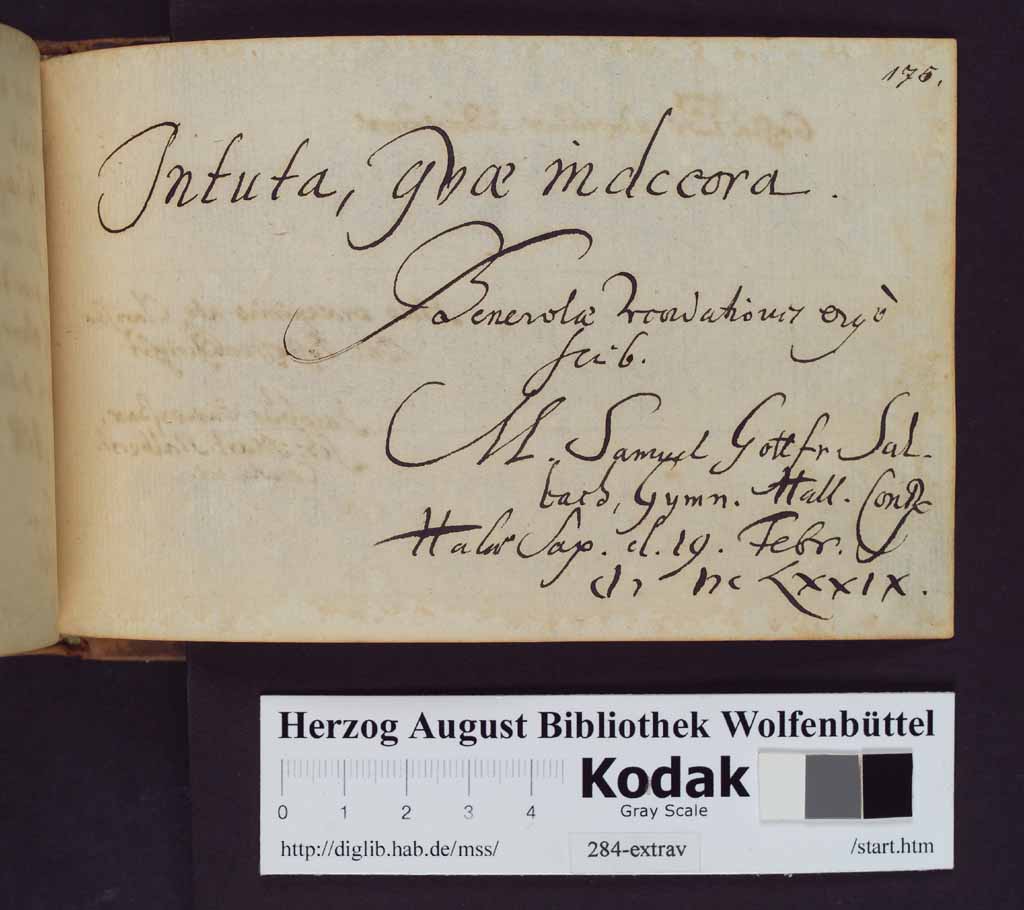 175.
Intuta, quae indecora.
Benevolae recordationis ergò
scrib.
M. Samuel Gottfr Sal-
bach, Gymn. Hall. ConR
Halae Sax. d. 19. Febr.
LXXIX.
Herzog August Bibliothek Wolfenbüttel
0 1 2 3 4
Kodak
Gray Scale
http://diglib.hab.de/mss/ 284-extrav /start.htm